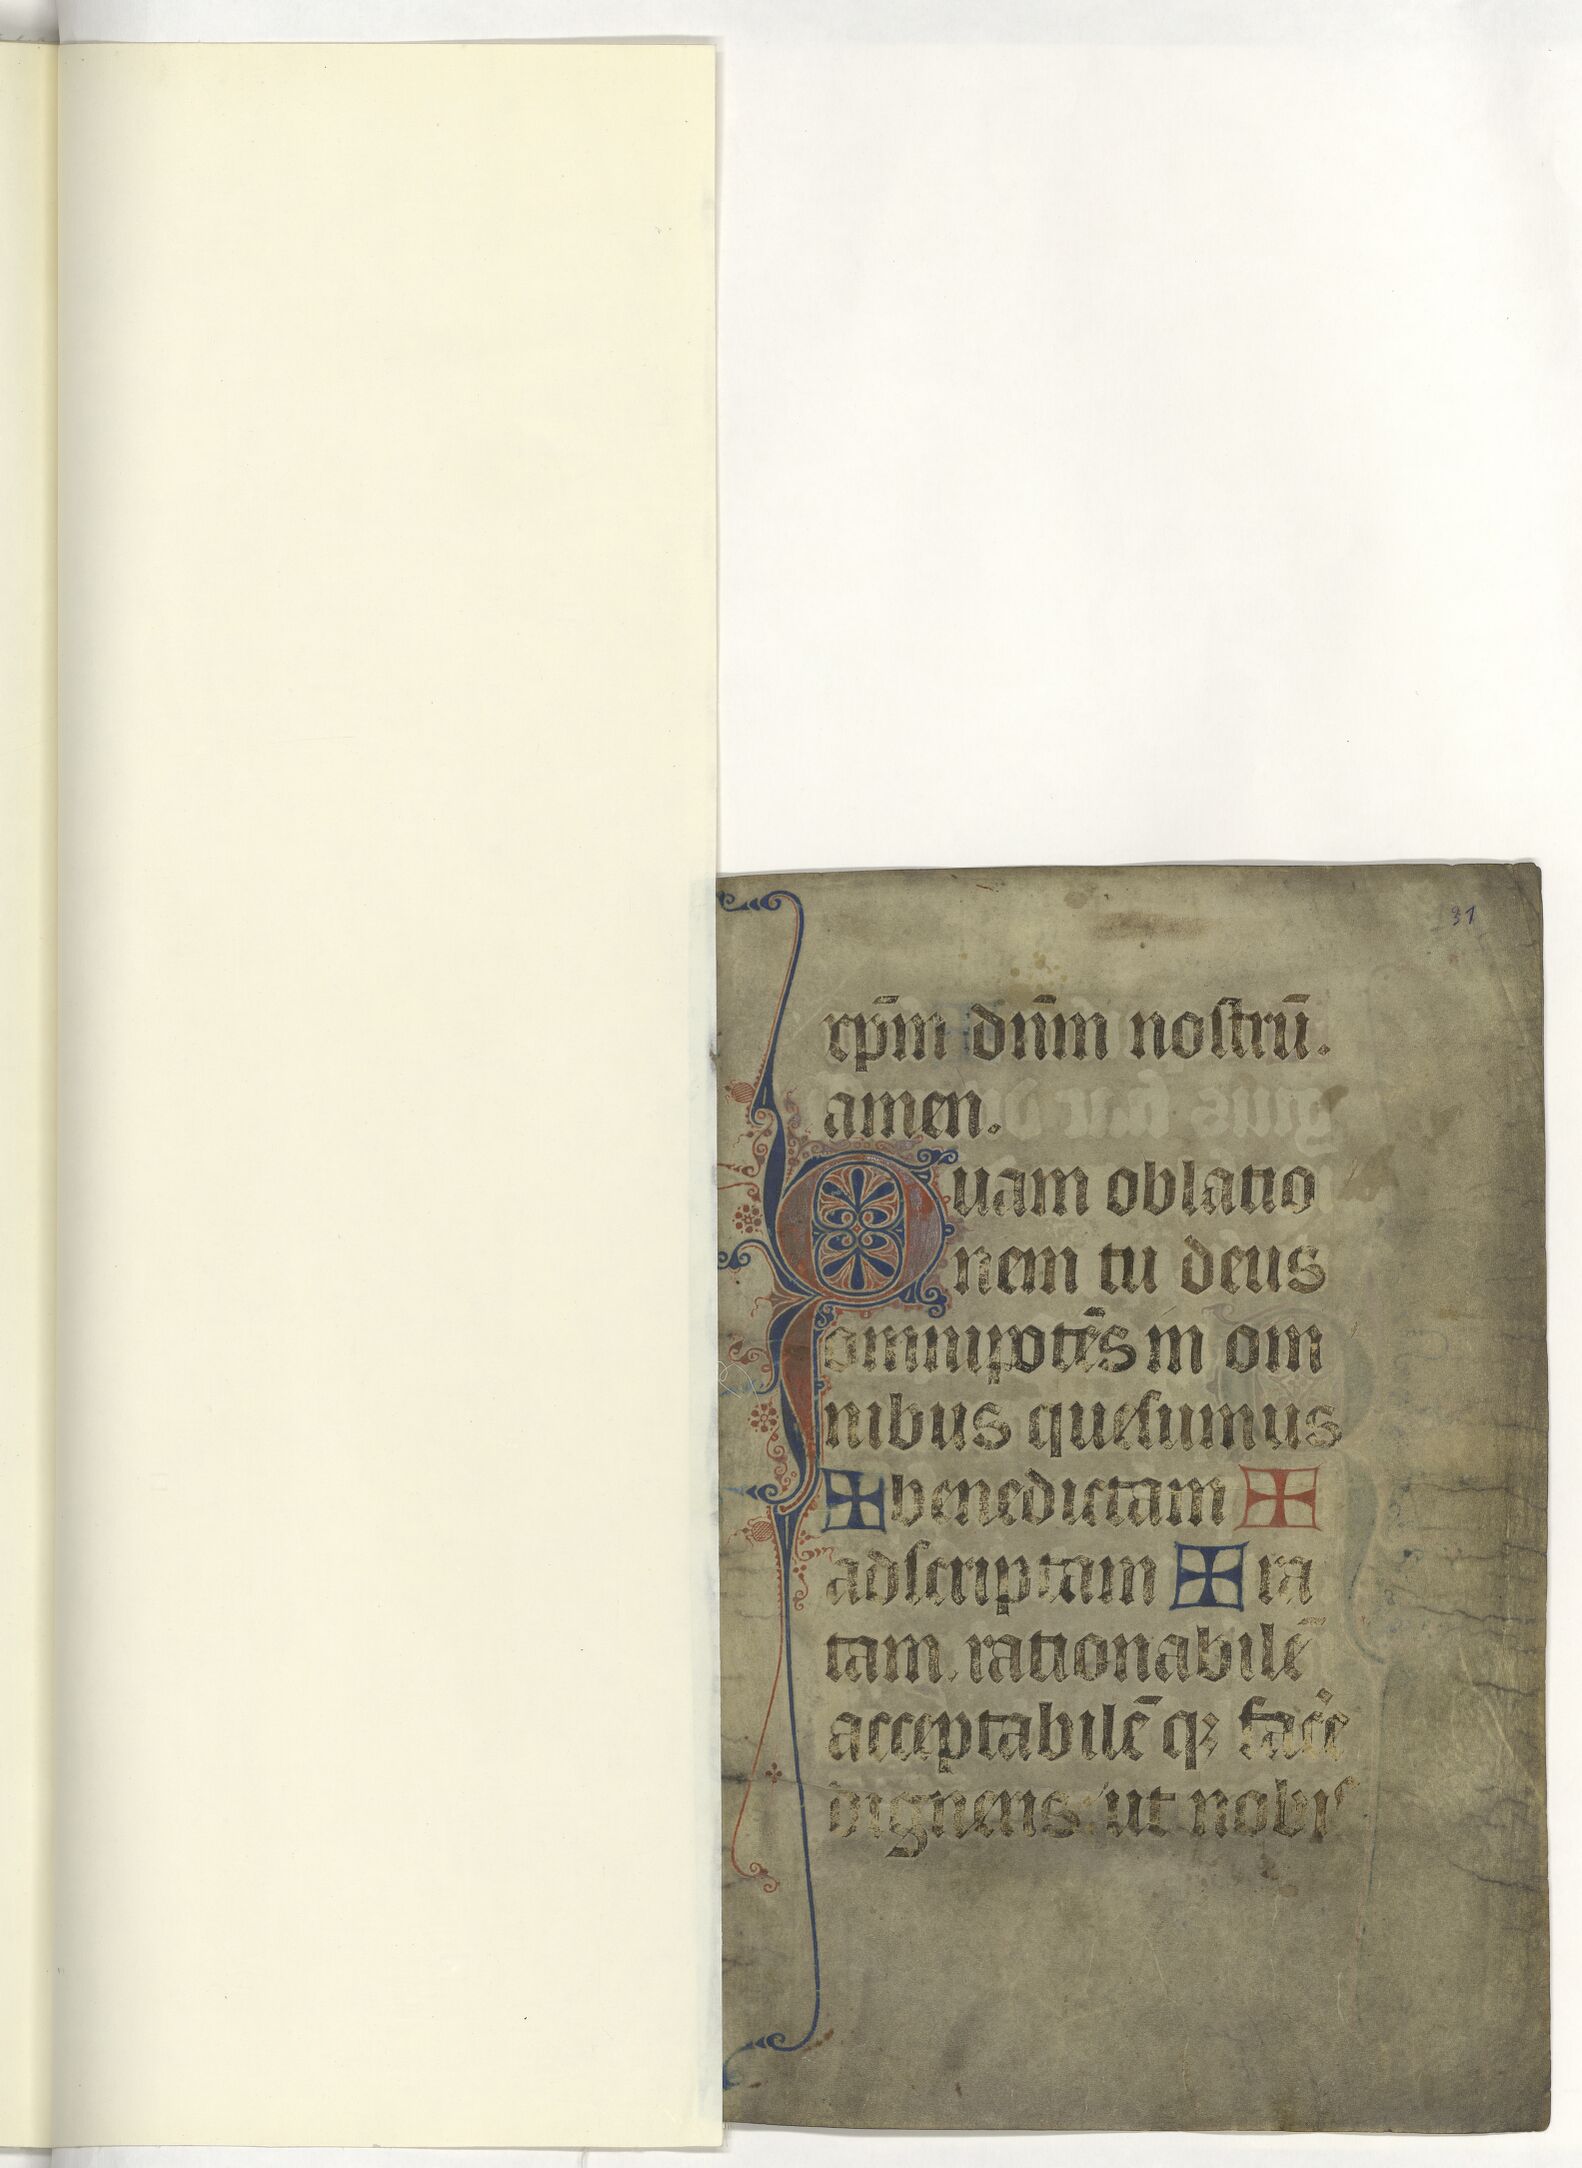 31
xp̄m dn̄m nostrū.
amen.
Quam oblatio
nem tu deus
omnipotēs in om
nibus quesumus
✠ benedictam ✠
adscriptam ✠ ra
tam. rationabilē
acceptabilē qꝫ face
digneris. ut nobis